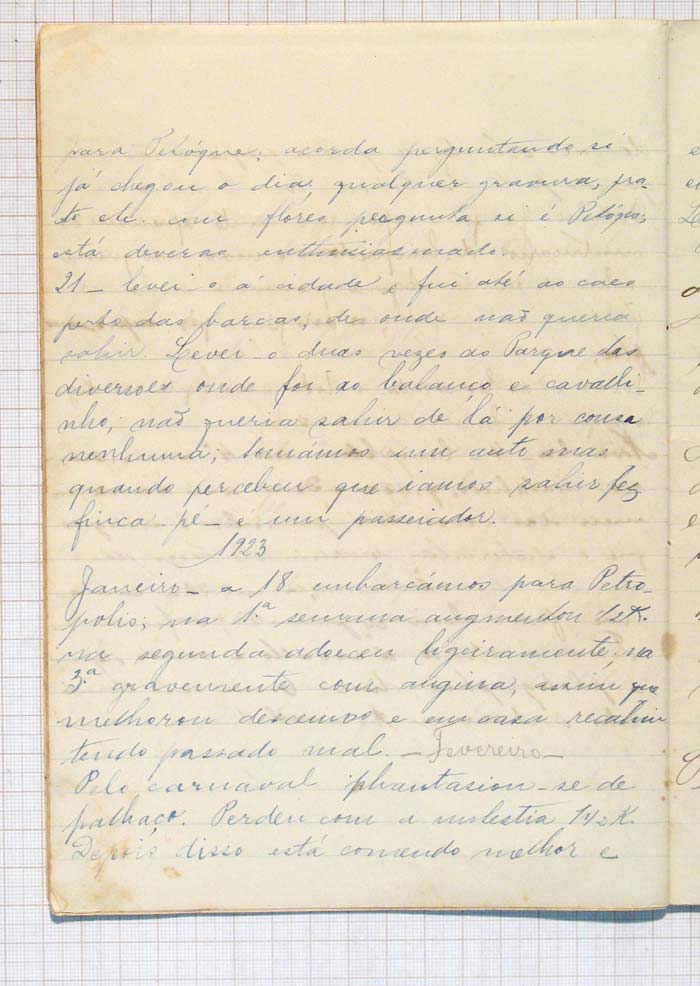 para Petóque; acorda perguntando si
já chegou o dia, qualquer gravura, pra-
to etc. com flôres pergunta si é Petóque;
está deveras enthusiasmado.
21 - levei-o á cidade e fui até ao caes
perto das barcas, de onde não queria
sahir. Levei-o duas vezes ao Parque das
diversões onde foi ao balanço e cavalli-
nho; não queria sahir de lá por cousa
nenhuma; tomámos um auto mas
quando percebeu que iamos sahir fez
finca-pé - é um passeiador.
1923
Janeiro - a 18 embarcámos para Petro-
polis; na 1.ª semana augmentou 1/2 K.
na segunda adoeceu ligeiramente, na
3.ª gravemente com angina, assim que
melhorou descemos e em casa recahiu
tendo passado mal. - Fevereiro -
Pelo carnaval phantasiou-se de
palhaço. Perdeu com a molestia 1 1/2 K.
Depois disso está comendo melhor e